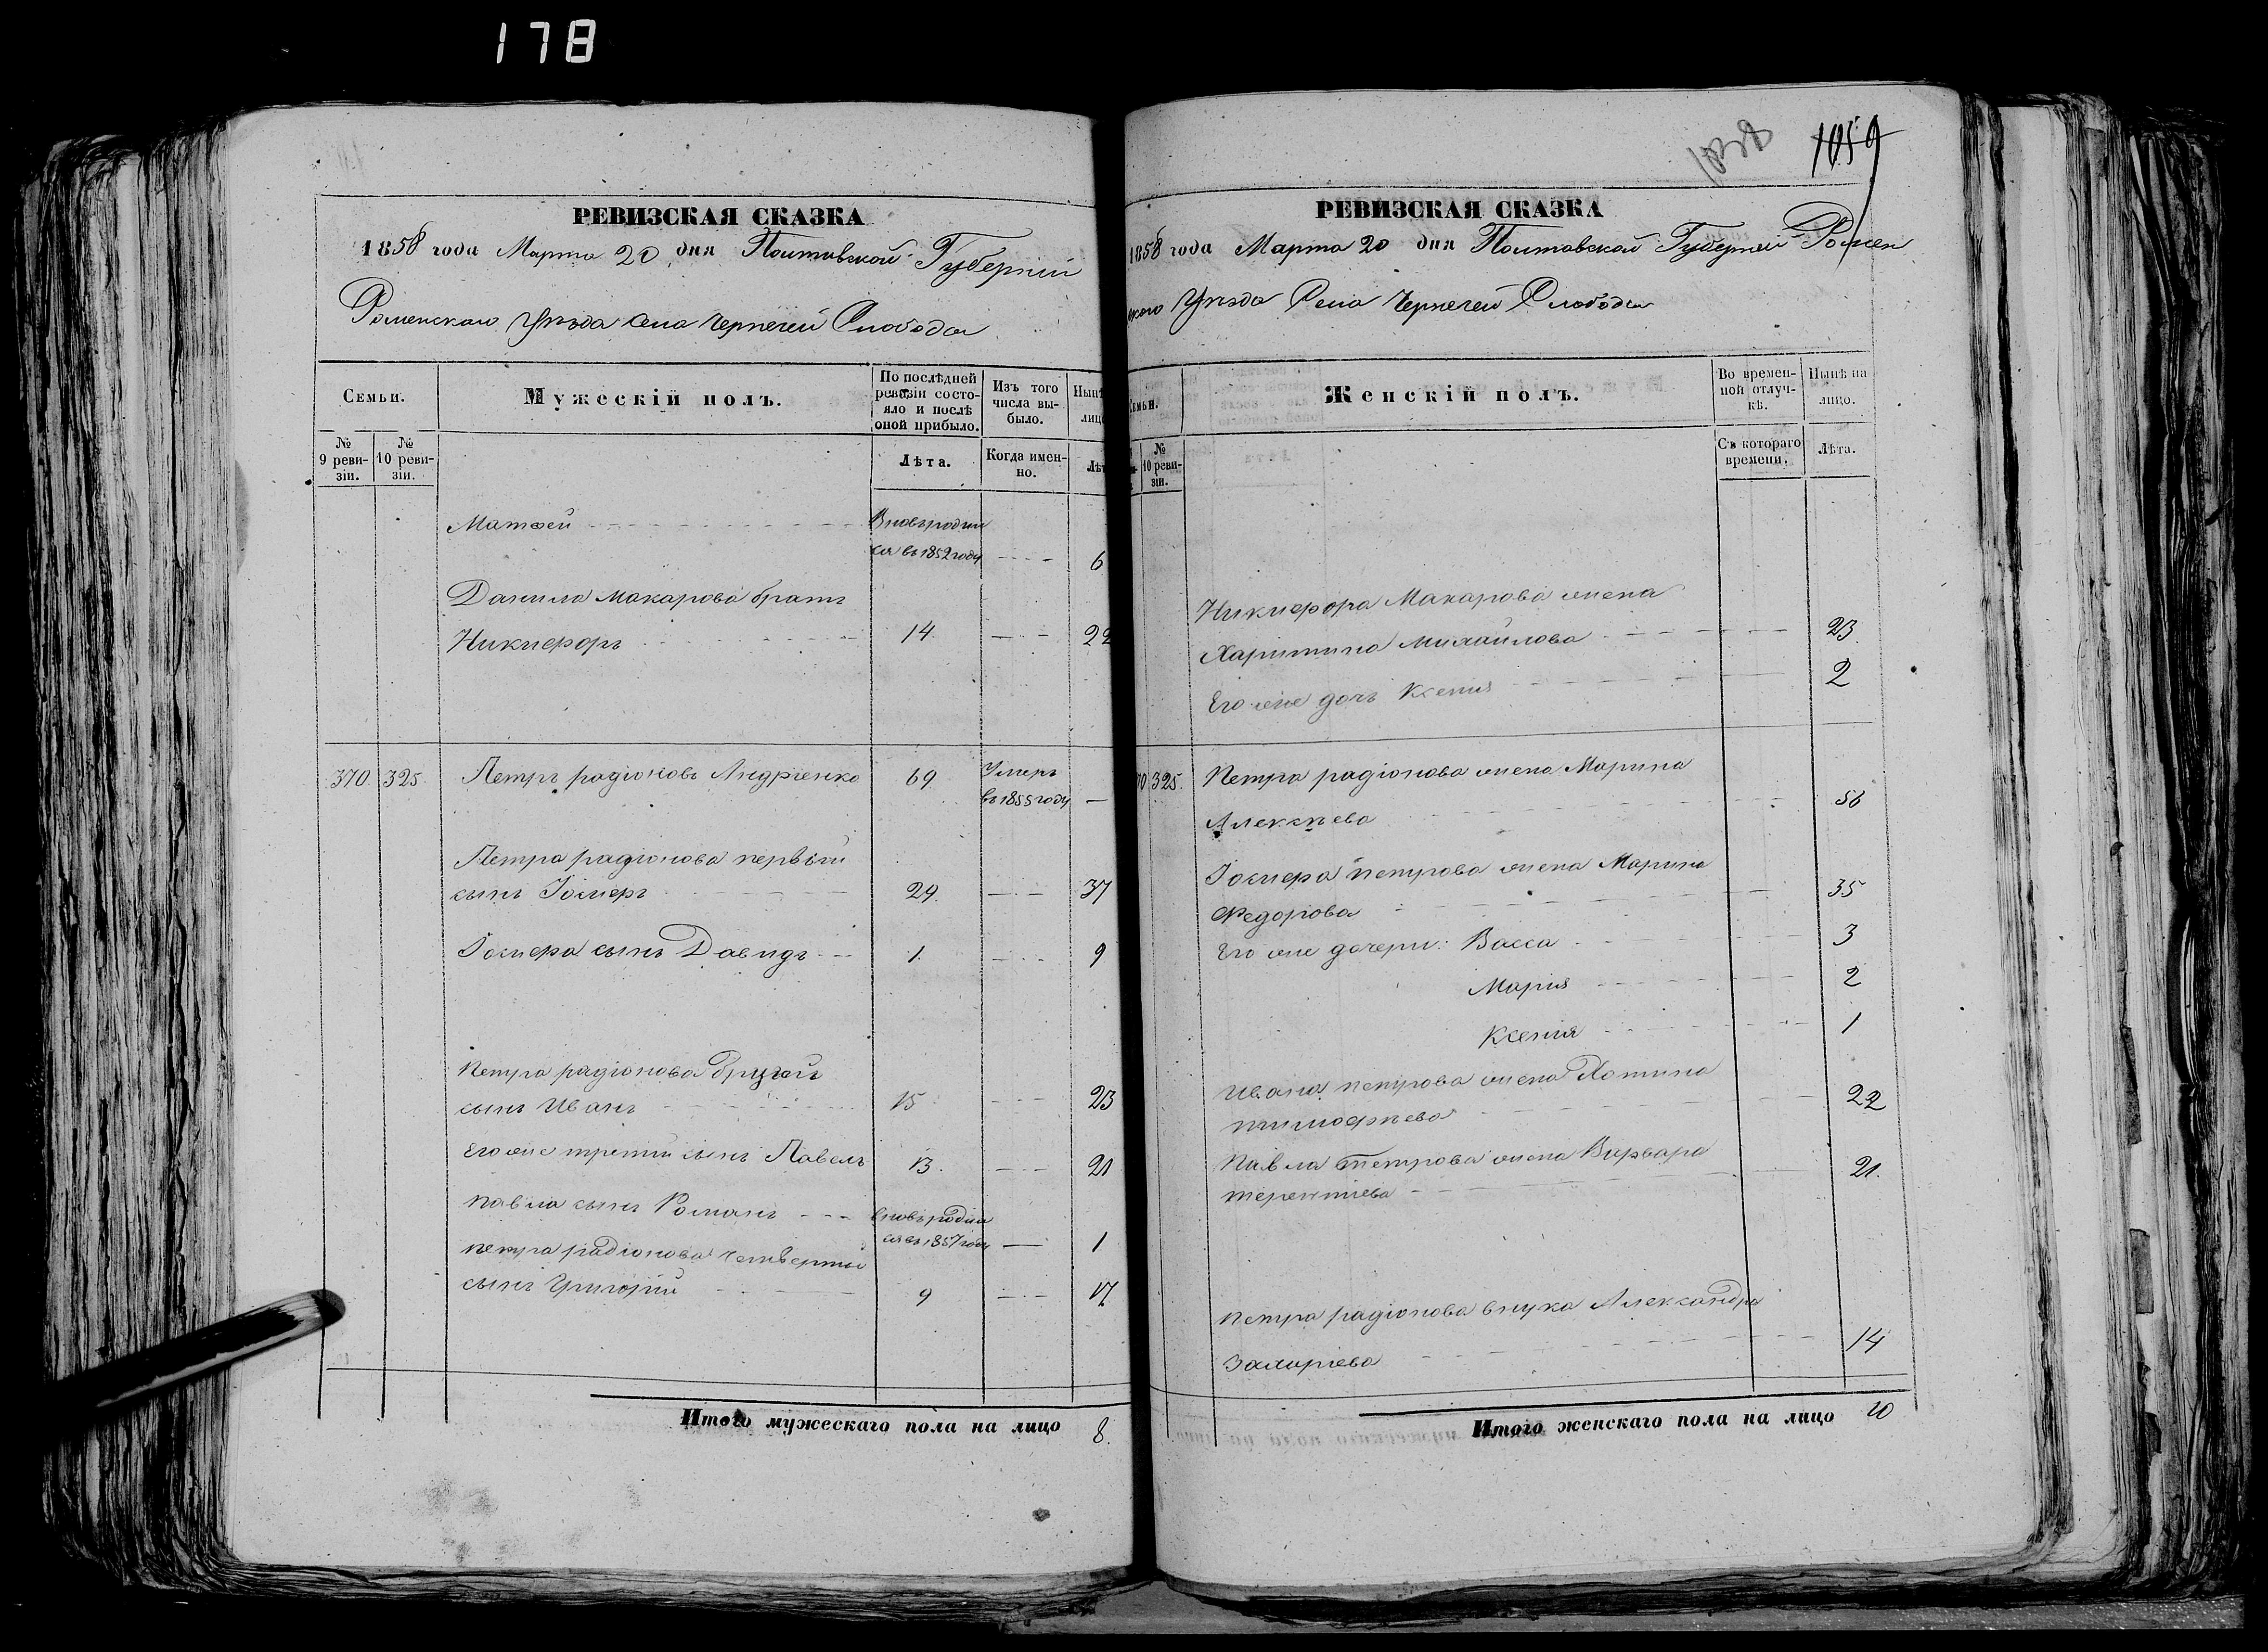 178
РЕВИЗСКАЯ СКАЗКА
1858 года Марта 20 дня Полтавской Губерніи
Роменскаго Уѣзда Села Чернечей Слободы
Семьи.
Мужескій полъ.
По послѣдней ревизіи состояло и послѣ оной прибыло.
Изъ того числа выбыло.
Нынѣ
лицо
№ 9 ревизіи.
№ 10 ревизіи.
Лѣта.
Когда именно.
Лѣт
Матвей Вновь родил
ся въ 1852 году 6
Данила Макарова братъ
Никифоръ 14 22
370. 325. Петръ радіоновъ Андріенко 69 Умеръ
въ 1855 году
Петра радіонова первый
сынъ Іосифъ 29. 37
Іосифа сынъ Давидъ 1. 9
Петра радіонова другой
сынъ Иванъ 15 23
Его же третій сынъ Павелъ 13. 21
Павла сынъ Романъ вновь родил
ся въ 1857 году 1
Петра радіонова четвертый
сынъ Григорій 9 17
Итого мужескаго пола на лицо 8.
1059
РЕВИЗСКАЯ СКАЗКА
1858 года Марта 20 дня Полтавской Губерніи Ромен
скаго Уѣзда Села Чернечей Слободы
Семьи.
Женскій полъ.
Во временной отлучкѣ.
Нынѣ на лицо.
№ 10 ревизіи.
Съ котораго времени.
Лѣта.
Никифора Макарова жена
Харитина Михайлова 23.
Его же дочь Ксенія 2
70 325. Петра радіонова жена Марина
Алексѣева 56
Іосифа петрова жена Марина
Федорова 35
Его же дочери: Васса 3
Марія 2
Ксенія 1
Ивана петрова жена Хотина
тимофѣева 22
Павла петрова жена Варвара
терентіева 21.
Петра радіонова внука Александра
Захаріева 14
Итого женскаго пола на лицо 10